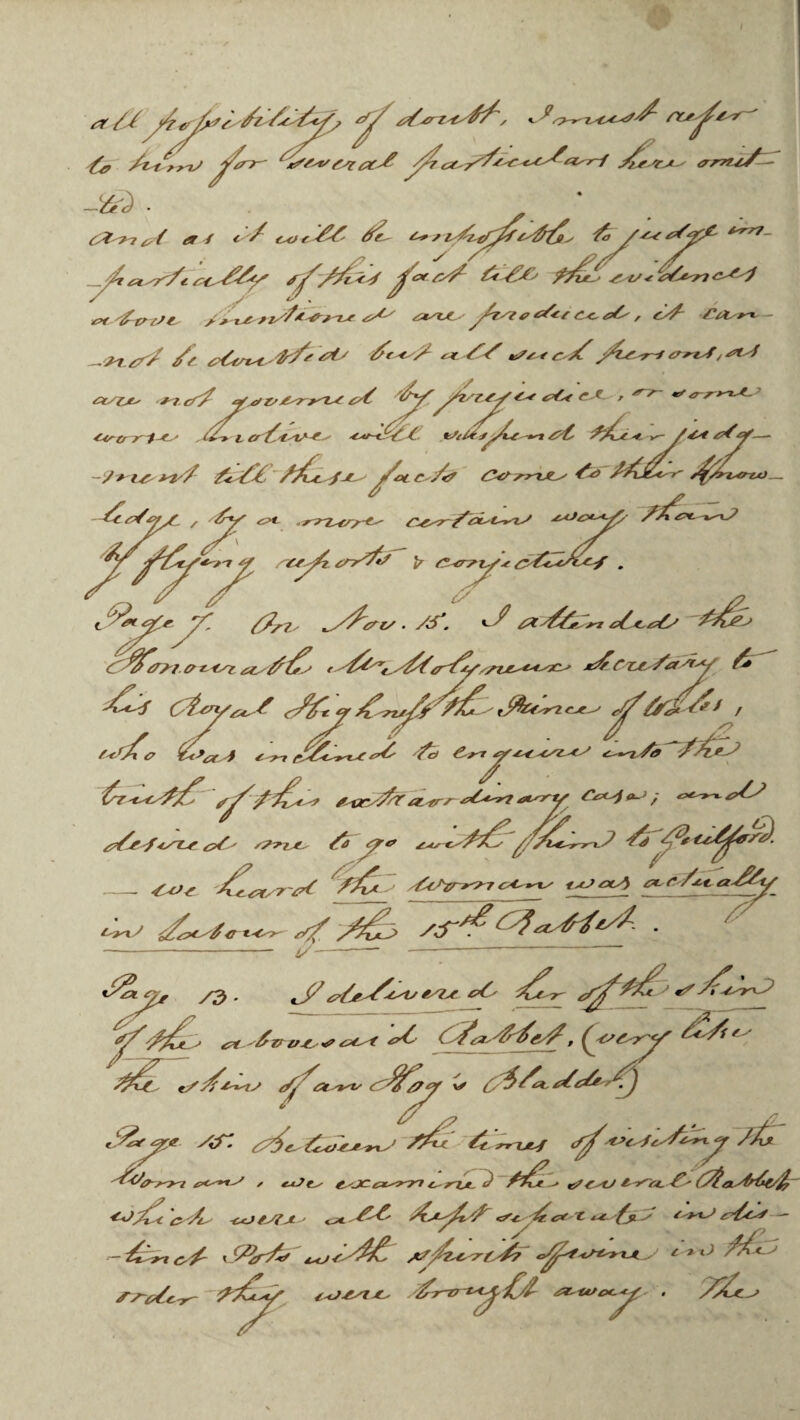 all possibility of doubt, I must refer
to him for several particulars here omit-
-ted.
And as it will be impossible to judge im-
-partially of this fact till the evidences
above mentioned are produced, it can-
-not be doubted but all such persons, as
are not governed by prejudice, or some
worse motive will suspend their judg-
-ment till these facts come to their know-
-ledge, by a more certain way than
by flying reports & conjectures.
Page 7. On Nov. 15. I attended the
Honourable Mr Molyneux Secretary to
his Royal Highness the Prince of Wales,
who was inclined to enquire into the
truth of this extraordinary case; and
desired me to go with him to Guilford.
— we heard the Woman was actually
in Labour of the 15th Rabbet.
Page 13. I delivered her of the skin
of the abovesaid Rabbet, (very like
the skin of an Hog's Bladder)
Page 15. Between the times of visiting the
Woman, we examined the several Rabbets
which were all kept apart in dis-
-tinct Pots with spirits of wine in the
order they were brought away. The